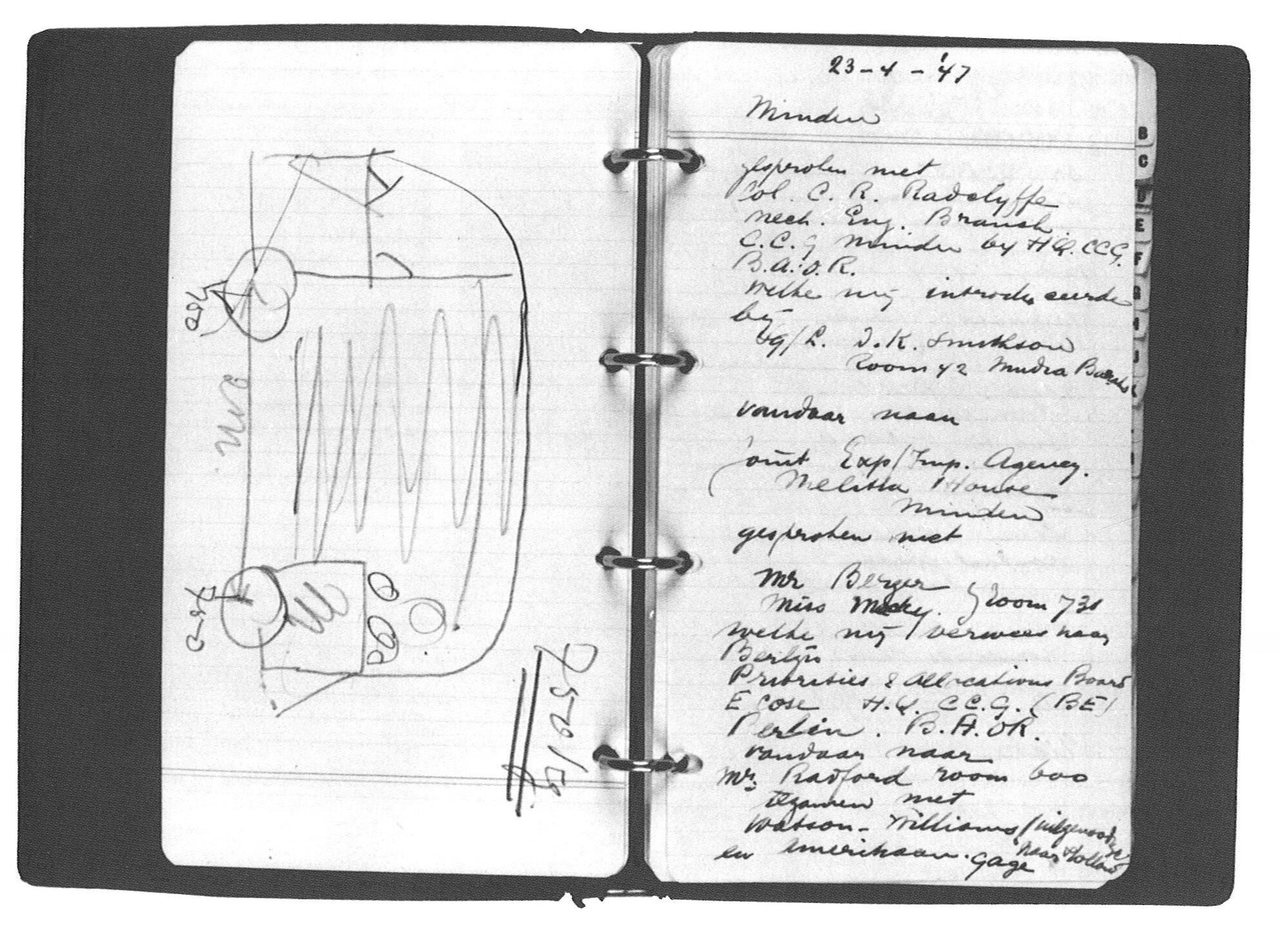 750
2 M.
750
750 kg
23-4-'47
Minden
gesproken met
Col. C. R. Radclyffe
Mech. Eng. Branch.
C.C.G Minden by H.Q. CCG.
B.A.O.R.
welke mij introduceerde
bij
Sq/L. D.K. Smithson
Room 42 Mudra
vandaar naar
Joint Exp/Imp. Agency.
Melitta House
Minden
gesproken met
Mr Berger
Miss room 730
welke mij verwees naar
Berlijn
Priorities & Allocations Board
E cose H.Q. C.C.G. (BE)
Berlin. B.A.OR.
vandaar naar
Mr. Radford room 600
tezamen met
Watson-Williams (uitgenoodigd
naar Holland
en Amerikaan. Gage
B
C
D
E
F
G
H
J
K